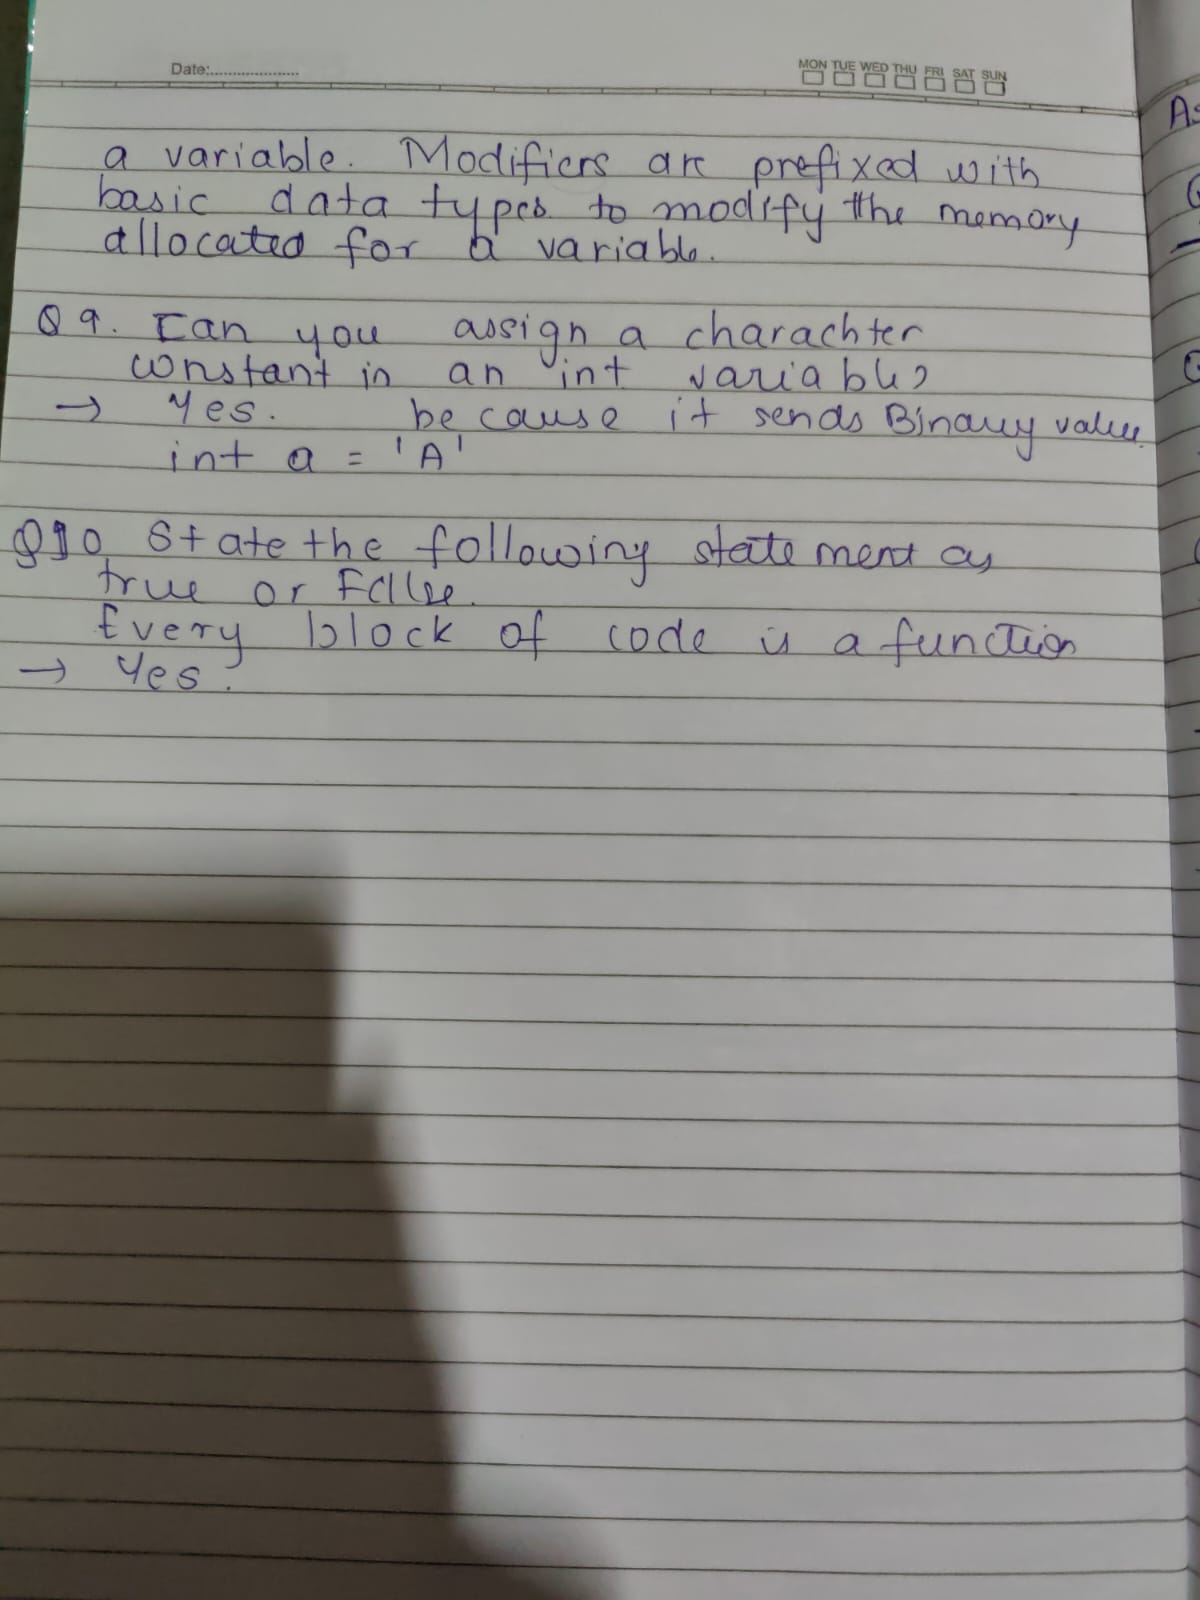 Date:
MON TUE WED THU FRI SAT SUN
a variable. Modifiers are prefixed with
basic data types to modify the memory
allocated for a variable.
Q 9. Can you assign a charachter
constant in an int variable?
→ Yes. because it sends Binary value.
int a = 'A'
Q10 State the following statement as
true or False.
Every block of code is a function
→ Yes.